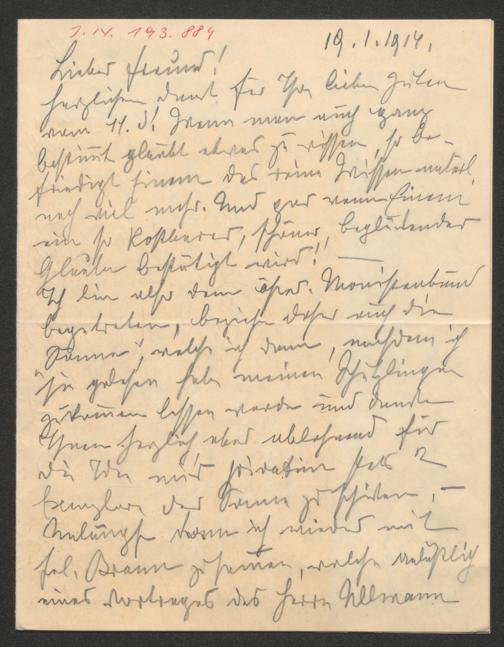 J.N. 193.884
19.1.1914.
Lieber Freund!
Herzlichen Dank für Ihre lieben guten
vom 11. d! Wenn man auch ganz
bestimmt glaubt etwas zu wissen, so be-
friedigt einem das reine Wissen natürl.
noch viel mehr. Und gar wenn einem
ein so kostbarer, schöner, beglückender
Glaube bestätigt wird! —
Ich bin also dem öster. Monistenbund
beigetreten, beziehe daher auch die
"Sonne", welche ich dann, nachdem ich
sie gelesen habe meinen Schützlingen
zukommen lassen werde und danke
Ihnen herzlich aber ablehnend für
die Idee mir privatim stets 2
Exemplare der Sonne zu schicken, —
ich wieder mit
Frl. Braun zusammen, welche anläßlich
eines Vortrages des Herrn Ullmann